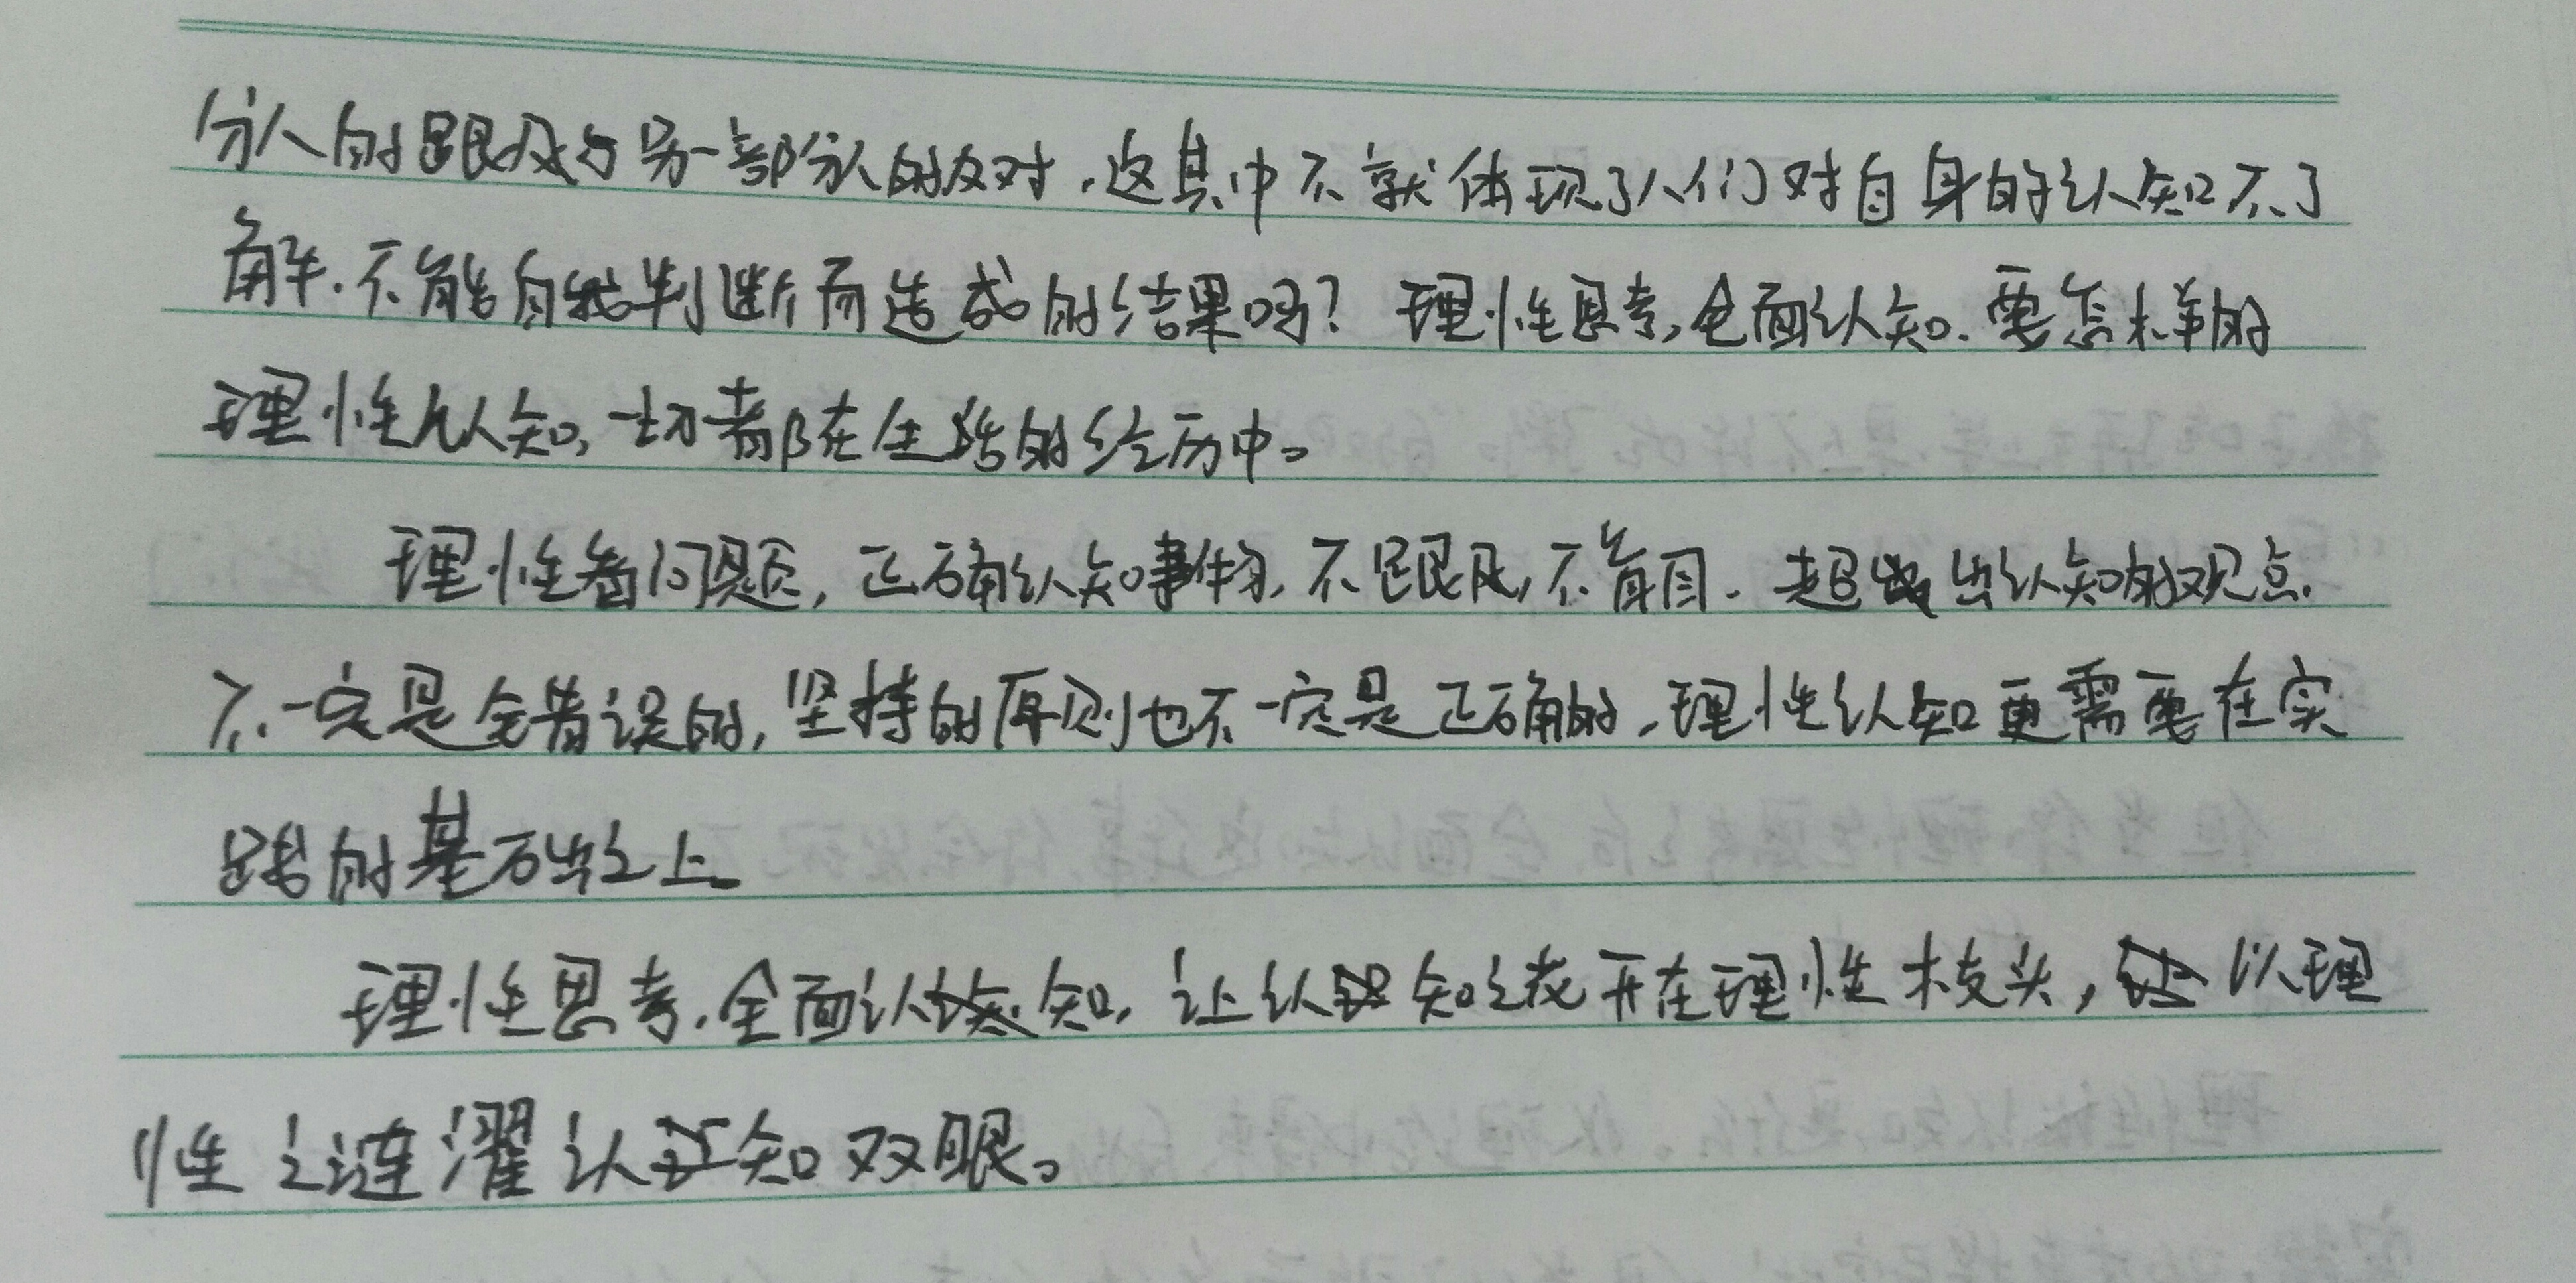 分人的跟风与另一部分人的反对，这其中不就体现了人们对自身的认知不了
解.不能自我判断而造成的结果吗？理性思考,全面认知.要怎样的
理性认知,一切都在生活的经历中。
理性看问题,正确认知事物,不跟风,不盲目.超出认知的观点.
不一定是全错误的,坚持的原则也不一定是正确的,理性认知更需要在实
践的基础之上
理性思考.全面认知,让认知之花开在理性枝头,以理
性之涟濯认知双眼。